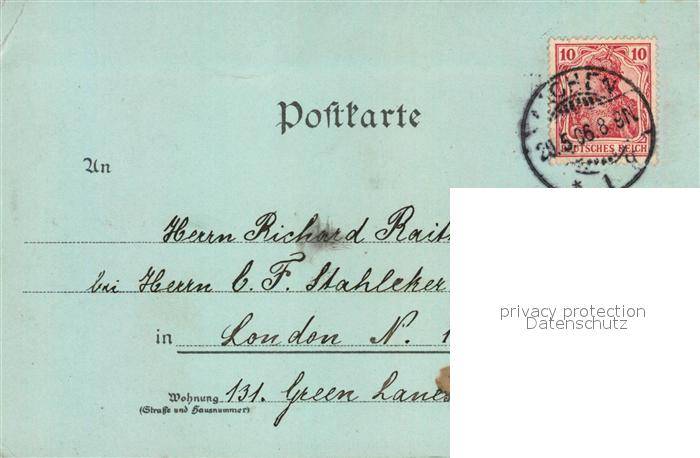 10 10
AACHEN
DEUTSCHES REICH
* 1
Postkarte
An
Herrn Richard Raith
bei Herrn C. F. Stahlecker
in London N. 1
Wohnung 131. Green Lanes
(Straße und Hausnummer)
privacy protection
Datenschutz